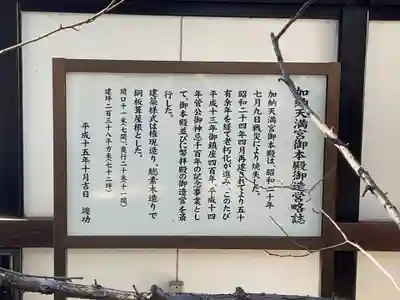 加納天満宮御本殿御造営略誌
加納天満宮御本殿は、昭和二十年
七月九日戦災により焼失した。
昭和二十四年四月再建されてより五十
有余年を経て老朽化が進み、このたび
平成十三年御鎮座四百年、平成十四
年菅公御神忌千百年の記念事業とし
て、御本殿並びに幣拝殿の御造営を斎
行した。
建築様式は権現造り、総素木造りで
銅板葺屋根とした。
間口十一米(七間)、奥行二十米(十一間)
建坪二百三十八平方米(七十二坪)
平成十五年十月吉日　竣功